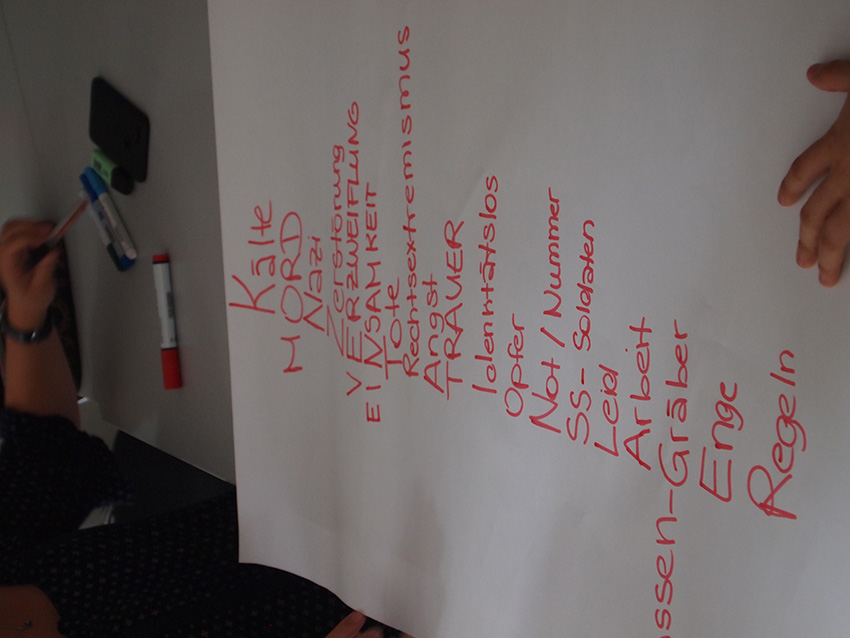 Kälte
MORD
Nazi
Zerstörung
VERZWEIFLUNG
EINSAMKEIT
Tote
Rechtsextremismus
Angst
TRAUER
Idenntätslos
Opfer
Not / Nummer
SS - Soldaten
Leid
Arbeit
ssen-Gräber
Enge
Regeln